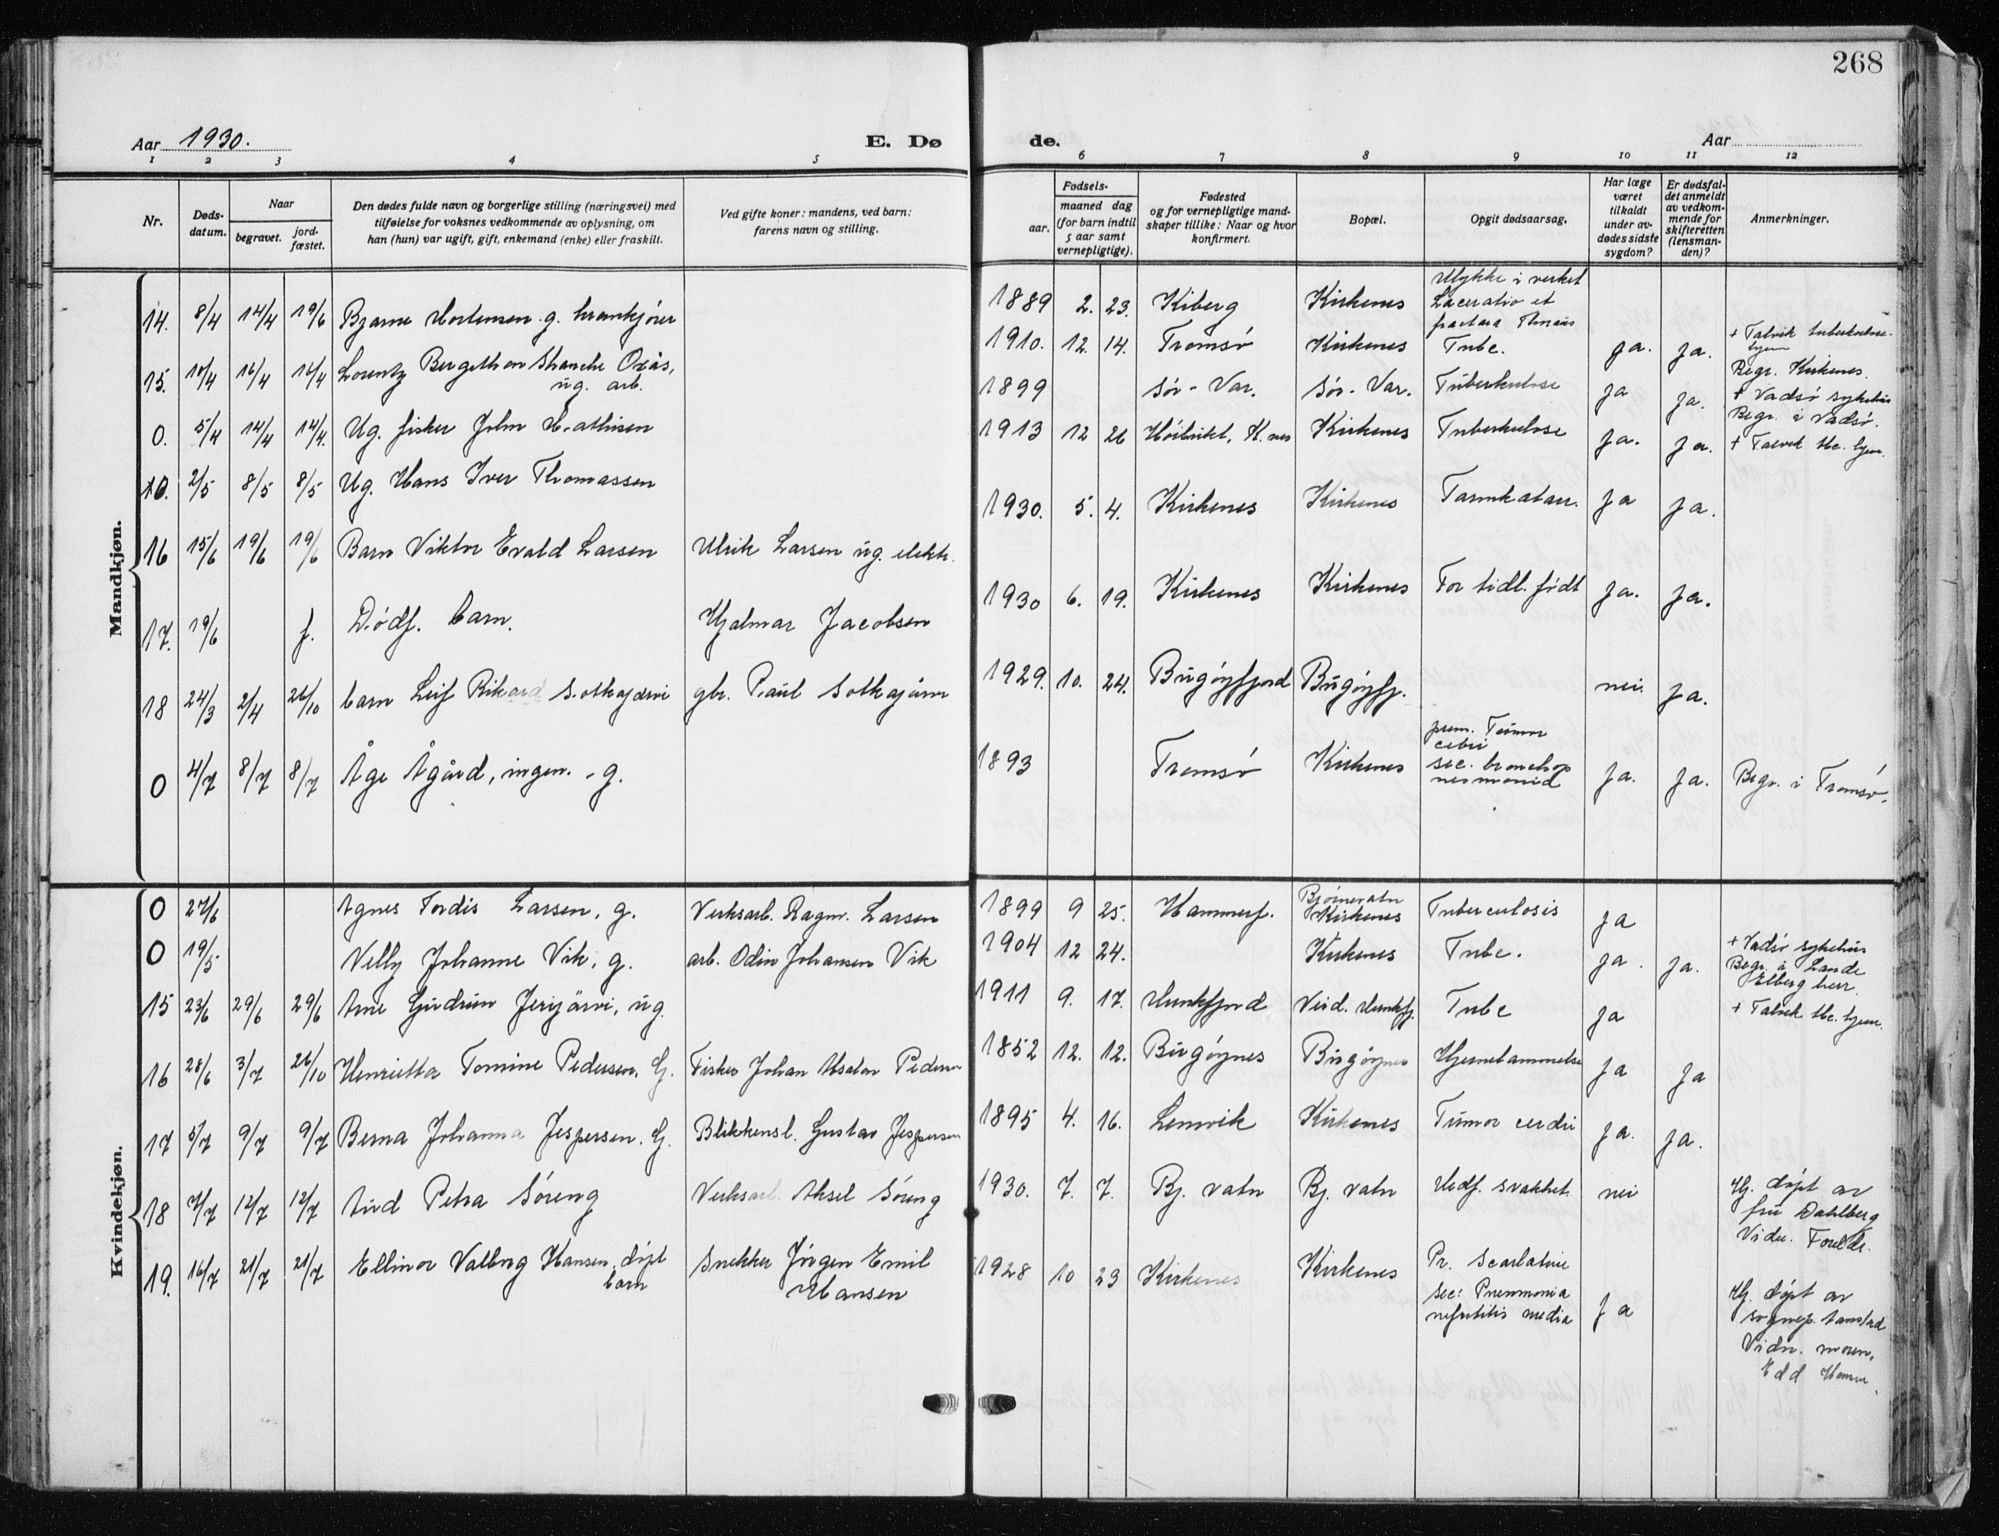 268
Aar 1930.
E. Dø
de.
Aar
1 2 3 4 5
6 7 8 9 10 11 12
Nr.
Døds-
datum.
Naar
begravet.
jord-
fæstet.
Den dødes fulde navn og borgerlige stilling (næringsvei) med
tilføielse for voksnes vedkommende av oplysning, om
han (hun) var ugift, gift, enkemand (enke) eller fraskilt.
Ved gifte koner: mandens, ved barn:
farens navn og stilling.
Fødsels-
aar.
maaned dag
(for barn indtil
5 aar samt
vernepligtige).
Fødested
og for vernepligtige mand-
skaper tillike: Naar og hvor
konfirmert.
Bopæl.
Opgit dødsaarsag.
Har læge
været
tilkaldt
under av-
dødes sidste
sygdom?
Er dødsfal-
det anmeldt
av vedkom-
mende for
skifteretten
(lensman-
den)?
Anmerkninger.
Mandkjøn.
14. 8/4 14/4 19/6 Bjarne Mortensen g. krankjører 1889 2. 23. Kiberg Kirkenes Ulykke i verket
Laceratio et
15. 10/4 16/4 16/4 Lorentz Bergethon Stanche Oxås, ug. arb. 1910. 12. 14. Tromsø Kirkenes Tube. ja. ja. + Talvik tuberkulose-
hjem
Begr. Kirkenes.
0. 5/4 14/4 14/4. Ug. fisker John Mathisen 1899 Sør-Var. Sør-Var. Tuberkulose ja ja. + Vadsø sykehus
Begr. i Vadsø.
10. 2/5 8/5 8/5 Ug. Hans Iver Thomassen 1913 12 26 K.nes Kirkenes Tuberkulose ja. ja. + Talvik tbc. hjem.
16 15/6 19/6 19/6 Barn Viktor Evald Larsen Ulrik Larsen ug. elektr. 1930. 5. 4. Kirkenes Kirkenes Tarmkatarr. ja ja.
17. 19/6 f. Dødf. barn. Hjalmar Jacobsen 1930 6. 19. Kirkenes Kirkenes For tidl. født ja. ja.
18 24/3 2/4 26/10 barn Leif Rikard Sotkajærvi gbr. Paul Sotkajærvi 1929. 10. 24. Bugøyfjord Bugøyfj. nei ja.
0 4/7 8/7 8/7 Åge Ågård, ingen. - g. 1893 Tromsø Kirkenes prim. Tumor
cebri
sec. bronchop
neumonid ja. ja. Begr. i Tromsø.
Kvindekjøn.
0 27/6 Agnes Tordis Larsen, g. Verksarb. Ragnv. Larsen 1899 9 25. Hammerf. Bjørnevatn
Kirkenes Tuberculosis ja
0 19/5 Velly Johanne Vik, g. arb. Odin Johansen Vik 1904 12 24. Kirkenes Tube. ja. ja. + Vadsø sykehus
Begr. i Lande
Elberg herr.
15 23/6 29/6 29/6 Arne Gudrun Jerijärvi, ug. 1911 9. 17. Munkfjord Veid. Munkfj. Tube ja + Talvik tbc. hjem.
16 28/6 3/7 26/10 Henrietta Tomine Pedersen. G. Fisker Johan Pedersen 1852 12. 12. Bugøynes Bugøynes Hjernebammelse ja ja
17 5/7 9/7 9/7 Berna Johanna Jespersen. G. Blikkensl. Gustav Jespersen 1895 4. 16. Lemvik Kirkenes Tumor cerebri ja. ja.
18 7/7 12/7 12/7 Aud Petra Søreng Verksarb. Aksel Søreng 1930. 7. 7. Bj. vatn Bj. vatn Medf. svakhet nei Hj. døpt av
fru Dahlberg
Vidn. Foreldr.
19. 16/7 21/7 21/7 Ellinor Valborg Hansen, døpt
barn Snekker Jörgen Emil
Hansen 1928 10 23 Kirkenes Kirkenes Pr. Scarlatine
sec: Pneumonia
nefritis media ja Hj. døpt av
sognep.
Vidn. moren,
Edd Hansen.